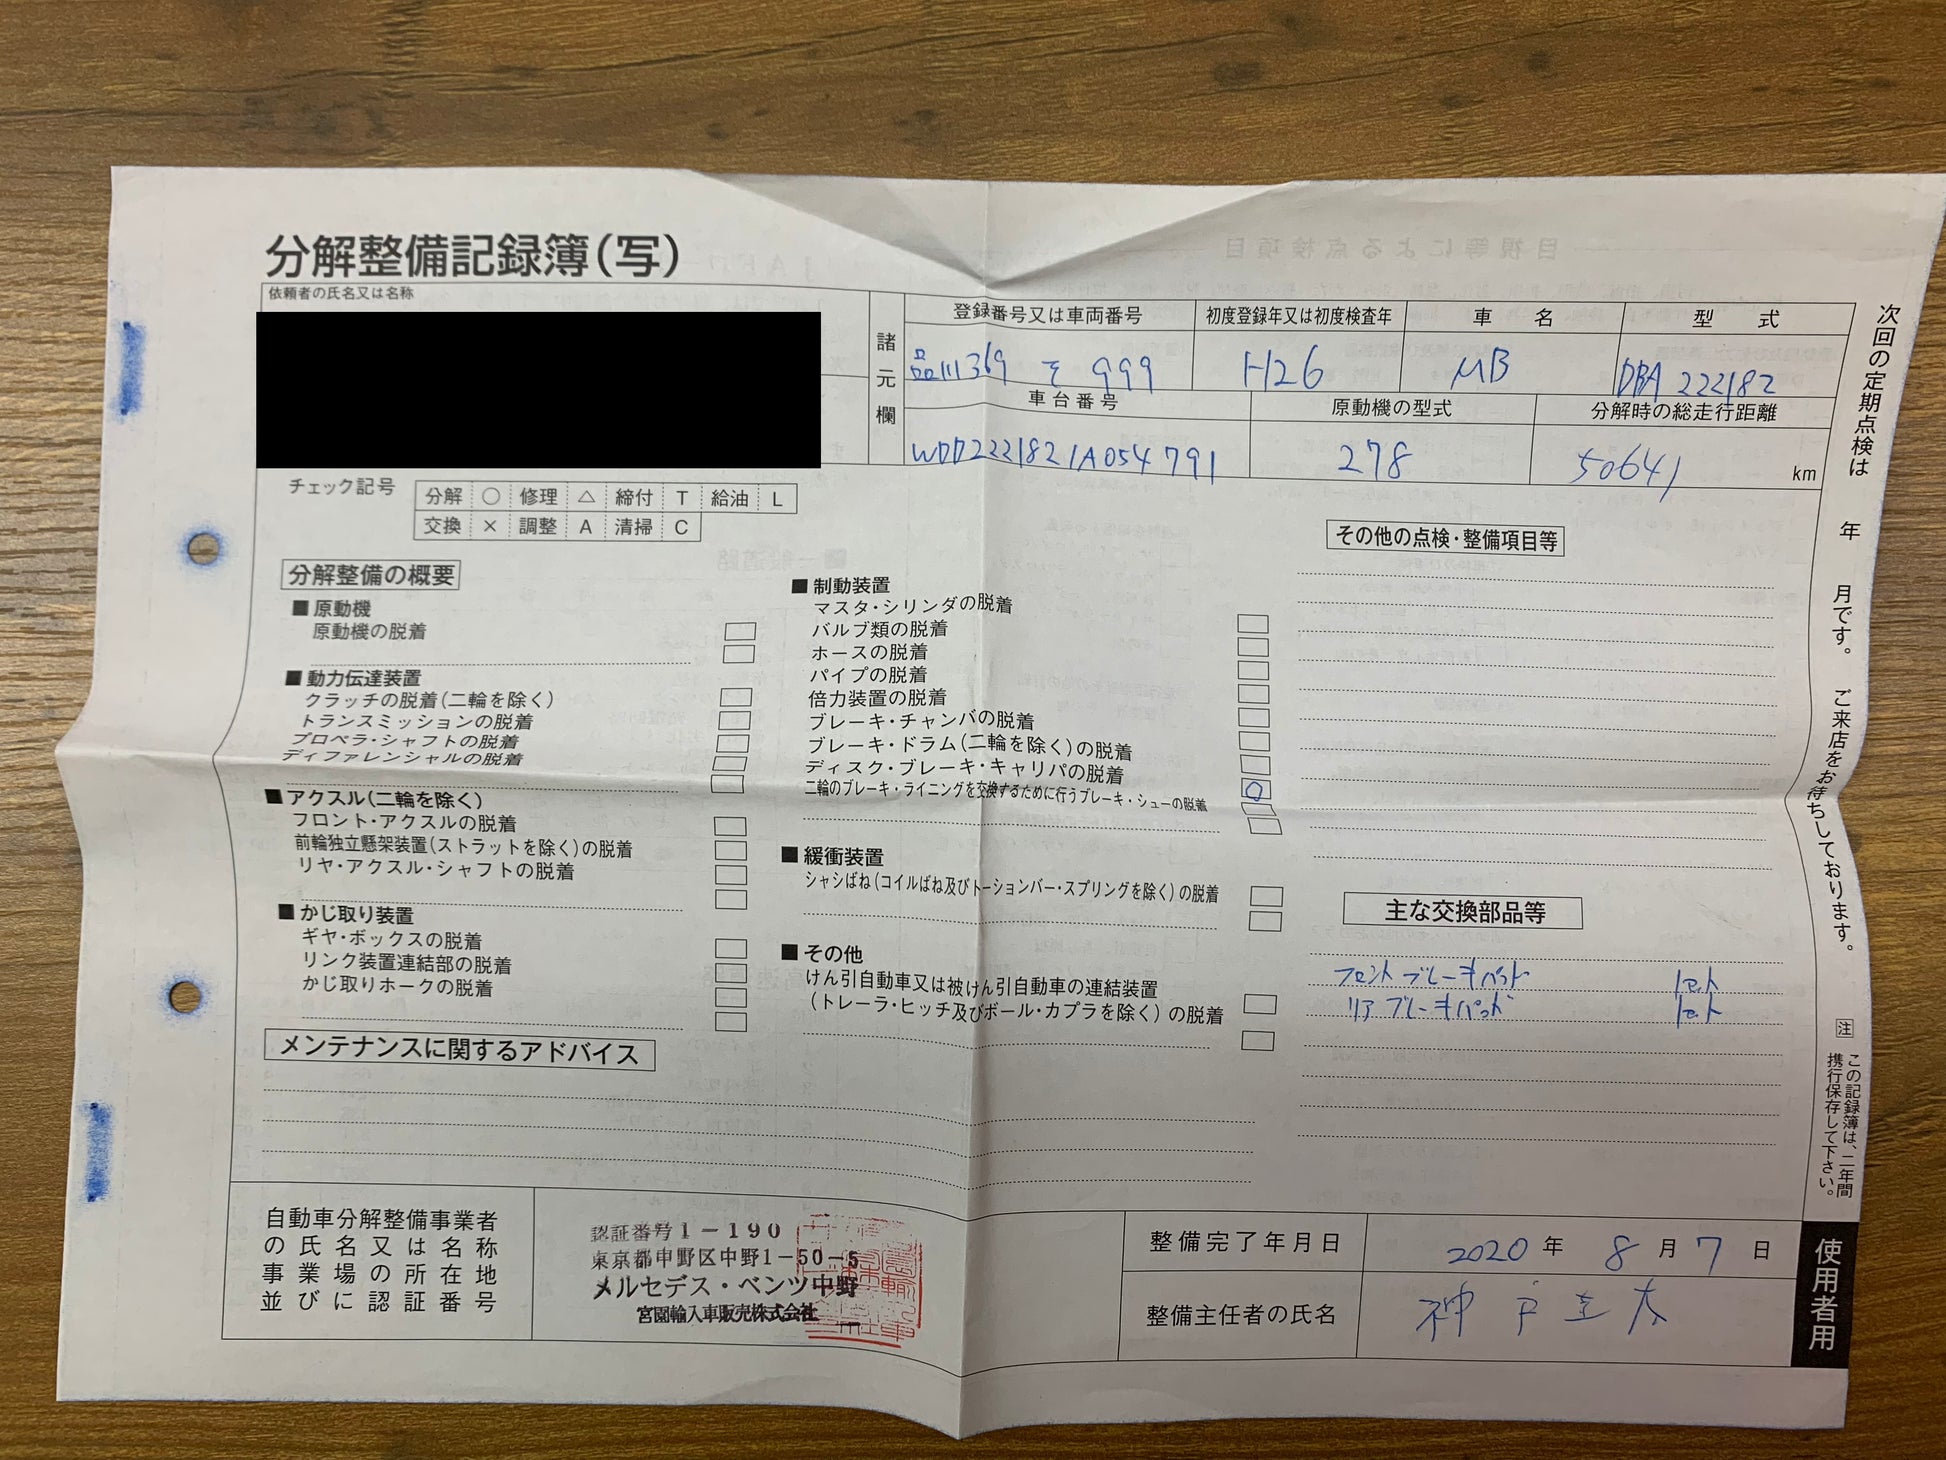 分解整備記録簿(写)
依頼者の氏名又は名称
諸元欄
登録番号又は車両番号 初度登録年又は初度検査年 車名 型式
品川369 そ 999 H26 MB DBA 222182
車台番号 原動機の型式 分解時の総走行距離
WDD2221821A054791 278 50641 km
チェック記号 分解 ○ 修理 △ 締付 T 給油 L
交換 × 調整 A 清掃 C
分解整備の概要
■ 原動機
原動機の脱着
■ 動力伝達装置
クラッチの脱着(二輪を除く)
トランスミッションの脱着
プロペラ・シャフトの脱着
ディファレンシャルの脱着
■ アクスル(二輪を除く)
フロント・アクスルの脱着
前輪独立懸架装置(ストラットを除く)の脱着
リヤ・アクスル・シャフトの脱着
■ かじ取り装置
ギヤ・ボックスの脱着
リンク装置連結部の脱着
かじ取りホークの脱着
■ 制動装置
マスタ・シリンダの脱着
バルブ類の脱着
ホースの脱着
パイプの脱着
倍力装置の脱着
ブレーキ・チャンバの脱着
ブレーキ・ドラム(二輪を除く)の脱着
ディスク・ブレーキ・キャリパの脱着 ○
二輪のブレーキ・ライニングを交換するために行うブレーキ・シューの脱着
■ 緩衝装置
シャシばね(コイルばね及びトーションバー・スプリングを除く)の脱着
■ その他
けん引自動車又は被けん引自動車の連結装置
(トレーラ・ヒッチ及びボール・カプラを除く)の脱着
その他の点検・整備項目等
主な交換部品等
フロント ブレーキパット 1セット
リア ブレーキパッド 1セット
メンテナンスに関するアドバイス
自動車分解整備事業者
の氏名又は名称
事業場の所在地
並びに認証番号
認証番号1-190
東京都中野区中野1-50-5
メルセデス・ベンツ中野
宮園輸入車販売株式会社
整備完了年月日 2020 年 8 月 7 日
整備主任者の氏名 神戸
次回の定期点検は 年 月です。 ご来店をお待ちしております。
注 この記録簿は、二年間
携行保存して下さい。
使用者用